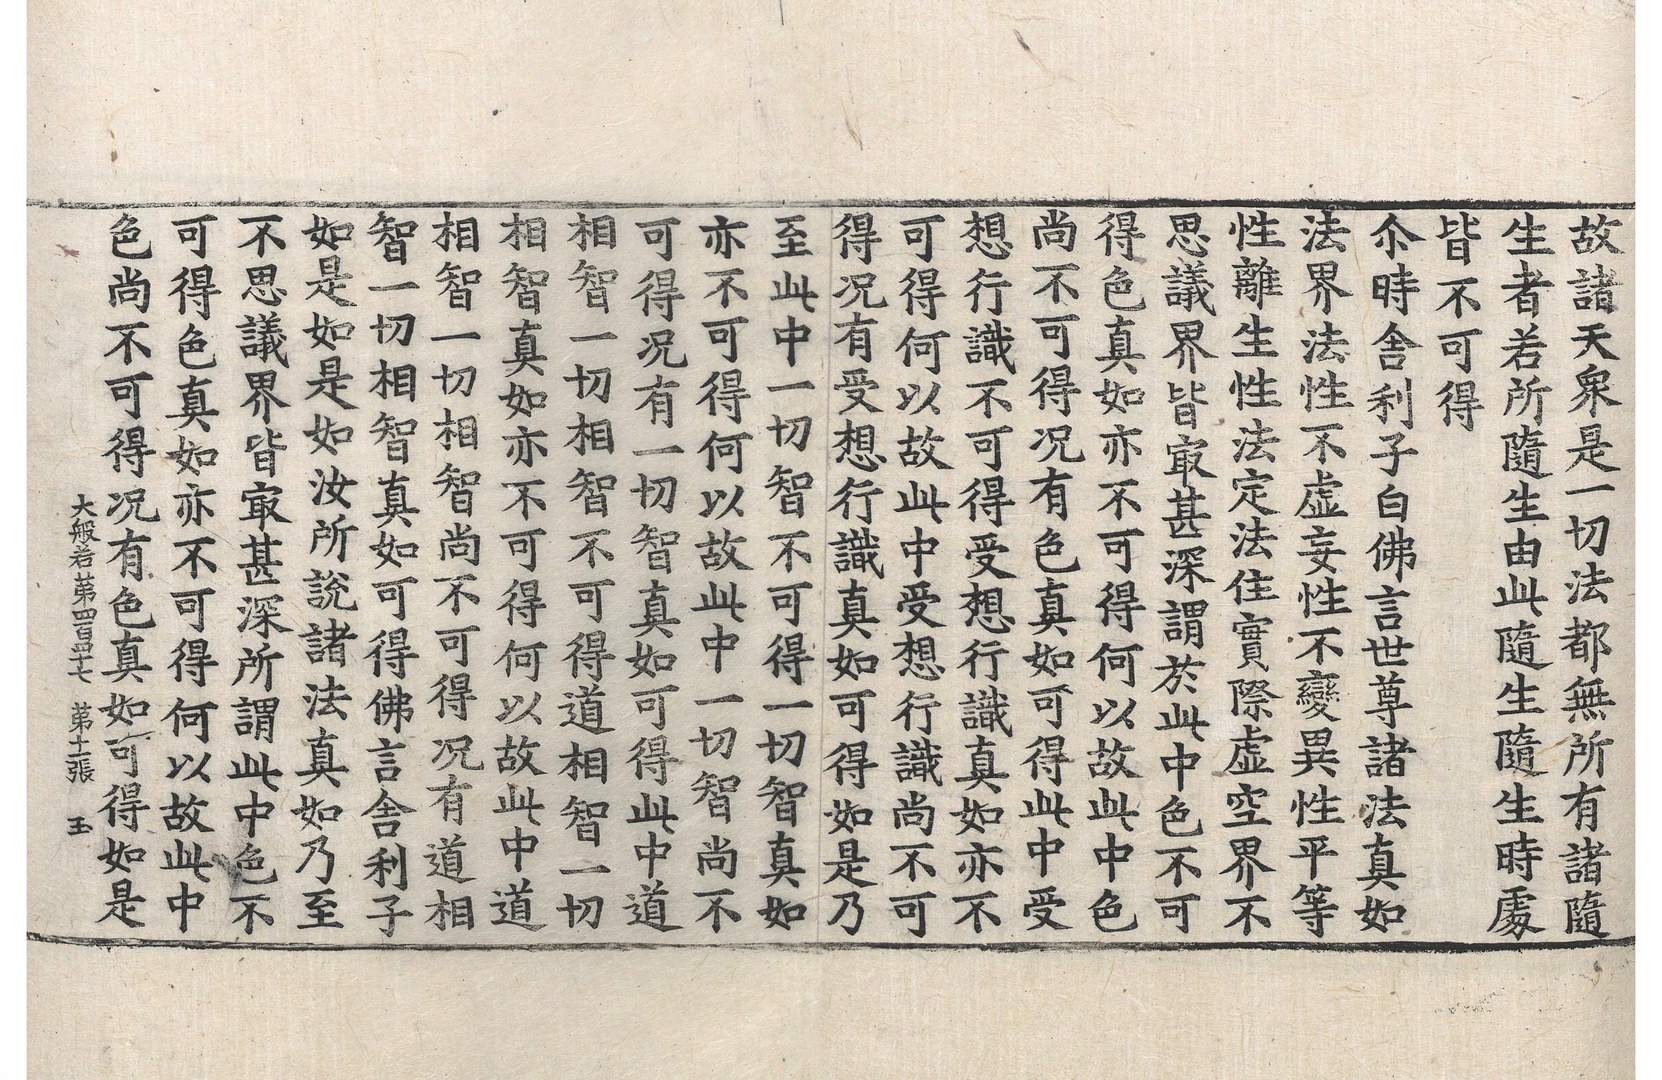 故諸天衆是一切法都無所有諸隨
生者若所隨生由此隨生隨生時處
皆不可得
尒時舍利子白佛言世尊諸法真如
法界法性不虛妄性不變異性平等
性離生性法定法住實際虛空界不
思議界皆㝡甚深謂於此中色不可
得色真如亦不可得何以故此中色
尚不可得况有色真如可得此中受
想行識不可得受想行識真如亦不
可得何以故此中受想行識尚不可
得况有受想行識真如可得如是乃
至此中一切智不可得一切智真如
亦不可得何以故此中一切智尚不
可得况有一切智真如可得此中道
相智一切相智不可得道相智一切
相智真如亦不可得何以故此中道
相智一切相智尚不可得况有道相
智一切相智真如可得佛言舍利子
如是如是如汝所說諸法真如乃至
不思議界皆㝡甚深所謂此中色不
可得色真如亦不可得何以故此中
色尚不可得况有色真如可得如是
大般若第四百四十七 第十二張 玉